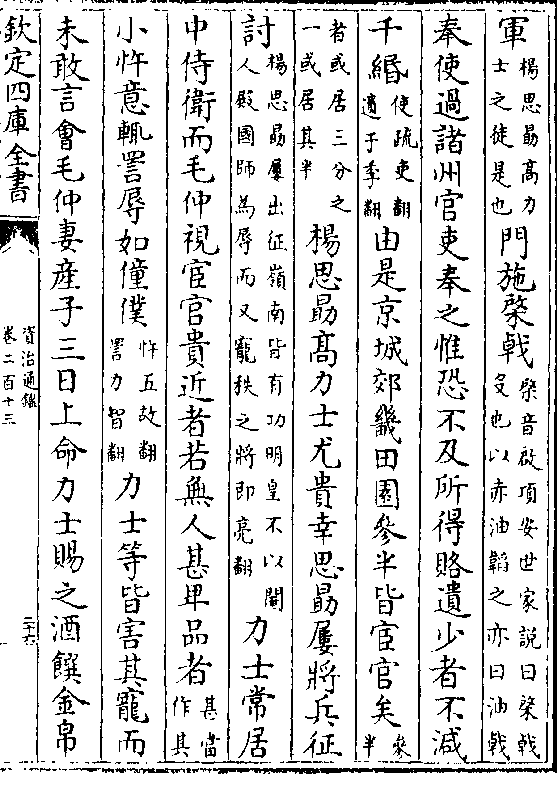 軍楊思勗髙力士之徒是也門施棨㦸棨音啟項安世家説曰棨㦸殳也以赤油韜之亦曰油㦸
奉使過諸州官吏奉之惟恐不及所得賂遺少者不減
千緡使疏吏翻遺于季翻由是京城郊畿田園參半皆宦官矣參半
者或居三分之一或居其半楊思勗髙力士尤貴幸思勗屢將兵征
討楊思勗屢出征嶺南皆有功明皇不以閹人殿國師為辱而又寵秩之將即亮翻力士常居
中侍衛而毛仲視宦官貴近者若無人甚卑品者甚當作其
小忤意輒詈辱如僮僕忤五故翻詈力智翻力士等皆害其寵而
未敢言會毛仲妻産子三日上命力士賜之酒饌金帛
欽定四庫全書
資治通鑑
卷二百十三
二十六